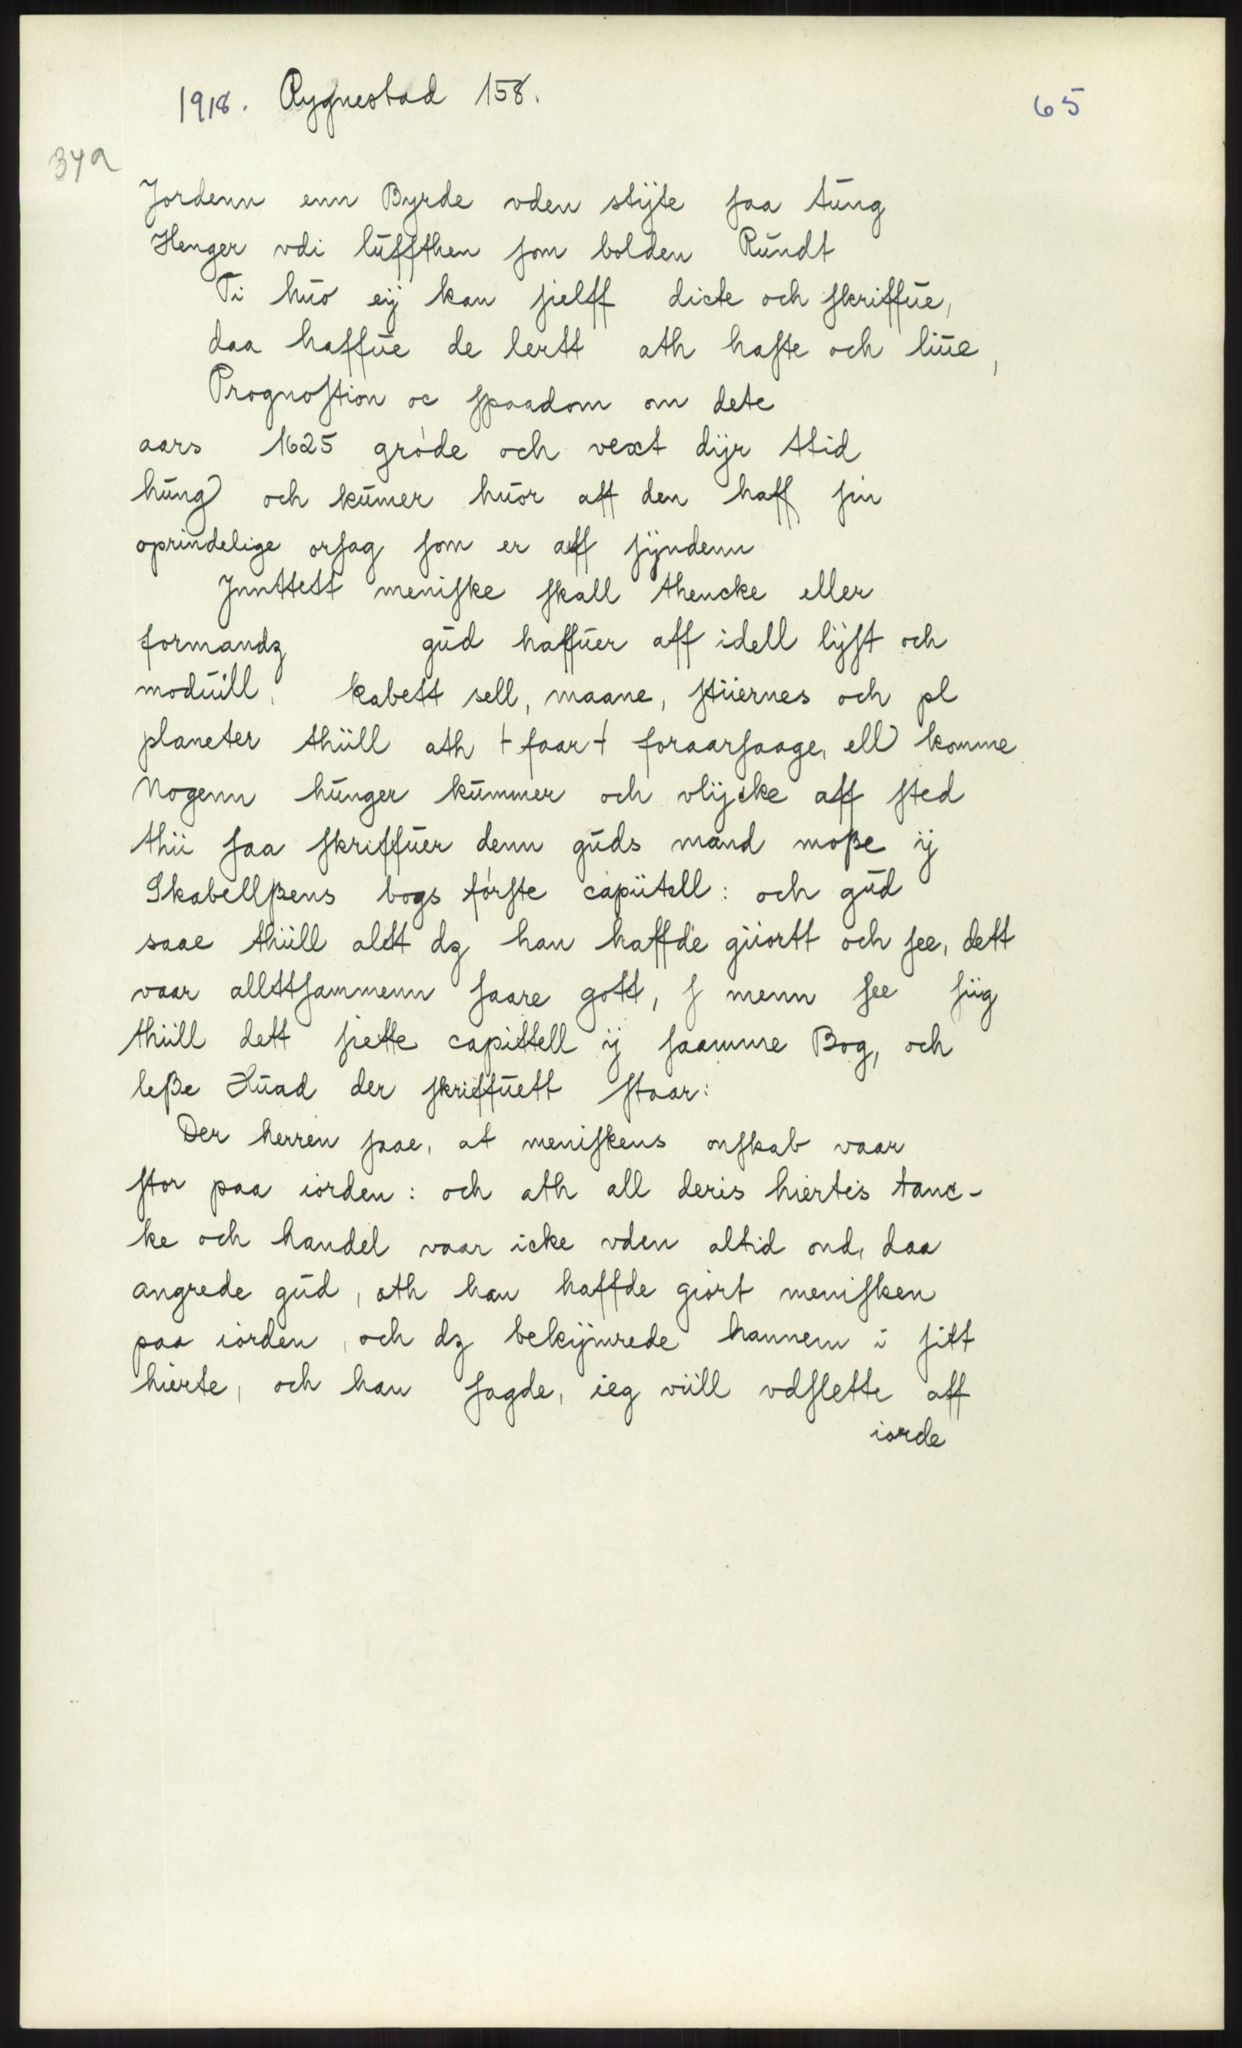 1918. Rygnestad 158. 65
34a
Jordenn enn Byrde vden stÿte saa tŭng
Henger vdi lŭffthen som bolden Rŭndt
Ti hŭo eÿ kan sielff dicte och skriffŭe,
daa haffŭe de lertt ath hafte och liŭe,
Prognostion oc spaadom om dete
aars 1625 grøde och vext dÿr ttid
hŭng och kŭmer hŭor aff den haff sin
oprindelige orsag som er aff sÿndenn
Jnnttett meniske skall thencke eller
formandz gŭd haffŭer aff idell lÿst och
modŭill, kabett sell, maane, stiernes och pl
planeter thiill ath + faar + foraarsaage, ell komme
Nogenn hŭnger kŭmmer och vlÿcke aff sted
thii saa skriffŭer denn gŭds mand moße ÿ
Skabellßens bogs første capiitell: och gŭd
saae thiill altt dz han haffde giiortt och see, dett
vaar allttsammenn saare gott, J menn see siig
thiill dett siette capittell ÿ saamme Bog, och
leße Hŭad der skriffŭett staar:
Der herren saae, at meniskens onskab vaar
stor paa iorden: och ath all deris hiertis tanc-
ke och handel vaar icke vden altid ond, daa
angrede gŭd, ath han haffde giort menisken
paa iorden, och dz bekÿmrede hannem i sitt
hierte, och han sagde, ieg viill vdslette aff
iorde